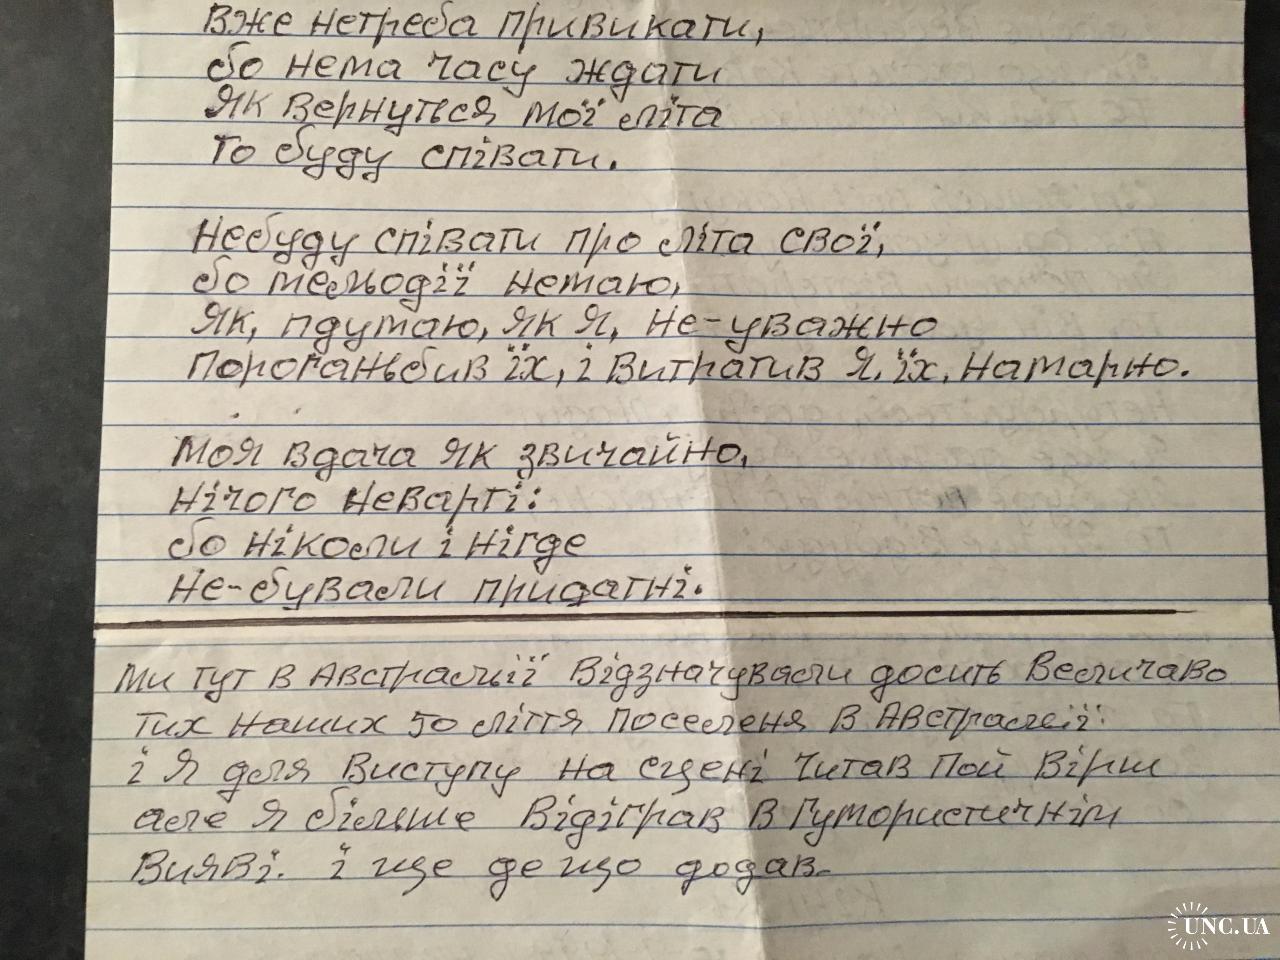 Вже нетреба привикати,
бо нема часу ждати
Як вернуться мої літа
то буду співати.
Небуду співати про літа свої,
бо мельодії немаю,
Як, пдумаю, як я, не-уважно
пороганьбив їх, і витратив я, їх, намарно.
Моя вдача як звичайно,
нічого неварті:
бо ніколи і нігде
не-бували придатні.
Ми тут в Австралії відзначували досить величаво
тих наших 50 ліття поселеня в Австралії:
і я для виступу на сцені читав пой вірш
але я більше відіграв в гумористичнім
вияві. і ще де що додав.
UNC.UA